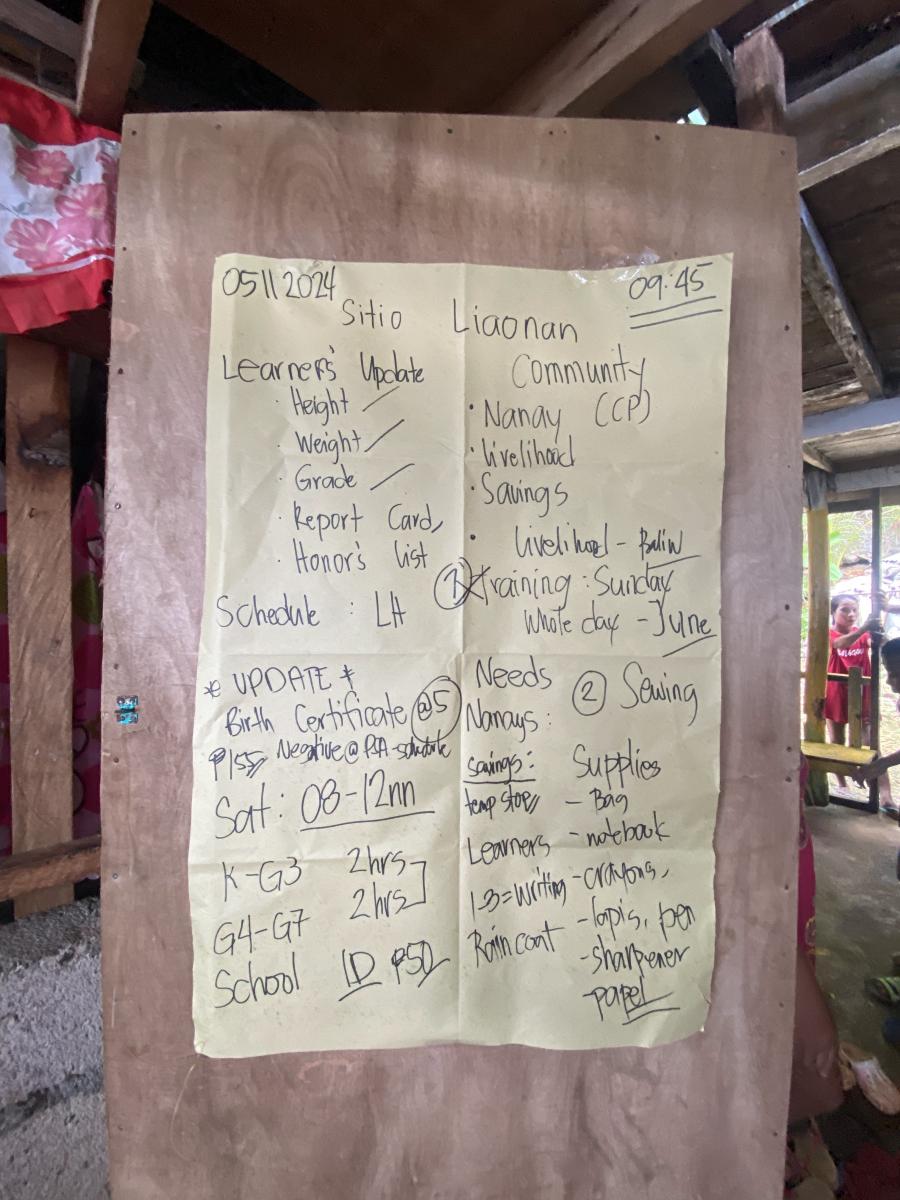 05112024
09:45
Sitio Liaonan
Learner's Update
· Height /
· Weight /
· Grade /
· Report Card,
· Honor's list
Schedule : LA
Community
· Nanay (CP)
· Livelihood
· Savings
· livelihood -
① Training : Sunday
Whole day - June
* UPDATE *
Birth Certificate @5
₱155 Negative @ PSA - schedule
Sat: 08-12nn
K-G3 2hrs
G4-G7 2hrs
School ID ₱50
Needs
② Sewing
Nanays:
savings:
temp stop
Learners
1-3=Writing
Raincoat
Supplies
- Bag
- notebook
- crayons,
- lapis, pen
- sharpener
- papel